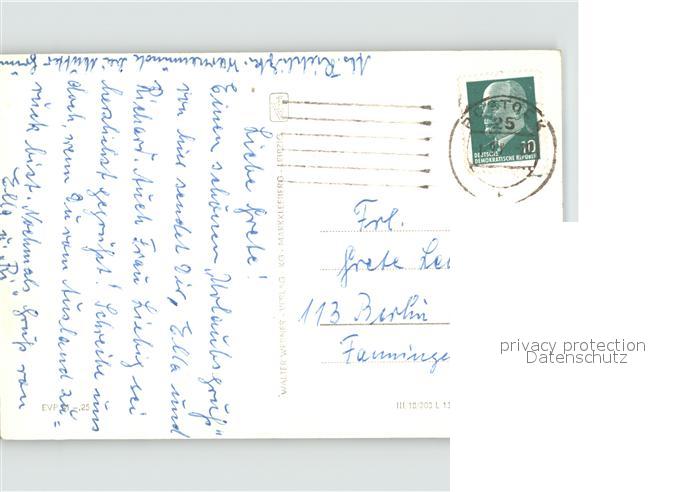 Liebe Grete!
Einen schönen "Urlaubsgruß"
von hier sendet Dir, Ella und
Richard. Auch Frau Liebig sei
herzlichst gegrüßt! Schreibe uns
doch, wenn Du vom Ausland zu=
rück bist. Nochmals Gruß von
Ella u. "Ri"
Warnemünde bei Mutter
WALTER WERNER VERLAG KG · MARKKLEEBERG - LEIPZIG
ROSTOCK
25
10
DEUTSCHE
DEMOKRATISCHE REPUBLIK
Frl.
Grete
113 Berlin
Fanninge
EVP 25
III 18/203 L 13
privacy protection
Datenschutz